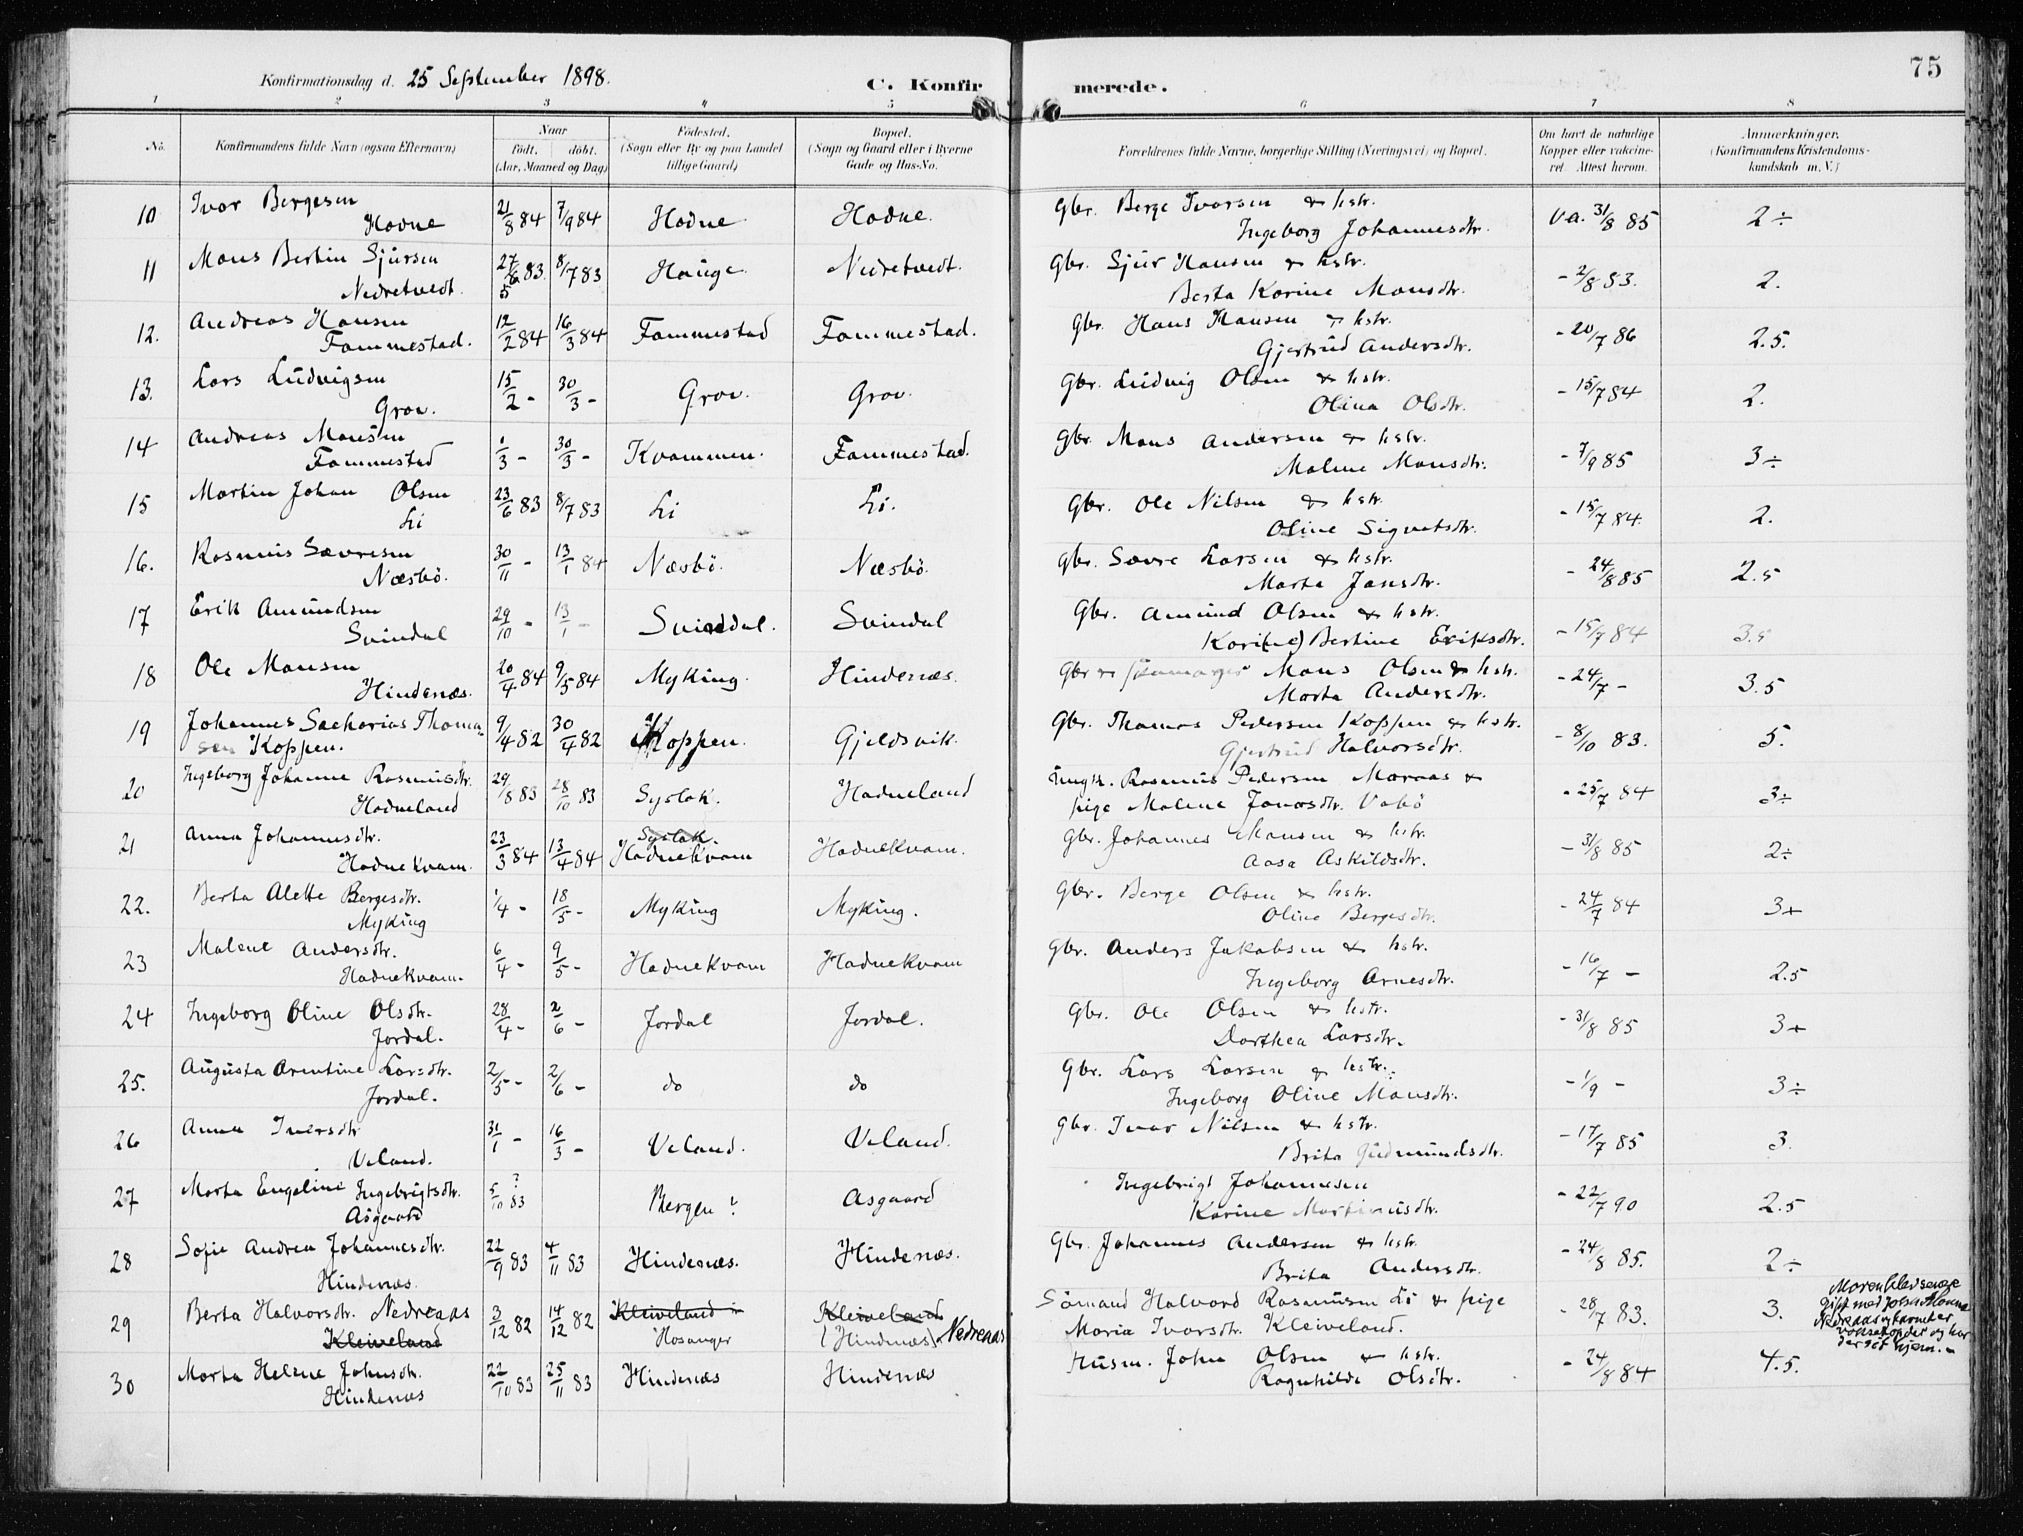 75
Konfirmationsdag d. 25 September 1898.
C. Konfirmerede.
1 2 3 4 5 6 7 8
No.
Konfirmandens fulde Navn (ogsaa Efternavn)
Naar
født. døbt.
(Aar, Maaned og Dag)
Fødested.
(Sogn eller By og paa Landet
tillige Gaard)
Bopæl.
(Sogn og Gaard eller i Byerne
Gade og Hus-No.
Forældrenes fulde Navne, borgerlige Stilling (Næringsvei) og Bopæl.
Om havt de naturlige
Kopper eller vakcine-
ret. Attest herom.
Anmærkninger.
(Konfirmandens Kristendoms-
kundskab m. V.)
10 Ivar Bergesen Hodne 21/8 84 7/9 84 Hodne Hodne. Gbr. Berge Ivarsen & hstr. Ingeborg Johannesdtr. va. 31/8 85 2÷
11 Mons Bertin Sjursen Nedretvedt. 27/5 83 8/7 83 Hauge. Nedretvedt. Gbr. Sjur Hansen & hstr. Berta Karine Monsdtr. - 2/8 83. 2.
12. Andreas Hansen Fammestad. 12/2 84 16/3 84 Fammestad Fammestad. Gbr. Hans Hansen & hstr. Gjertrud Andersdtr. - 20/7 86 2.5.
13. Lars Ludvigsen Grov. 15/2 - 30/3 - Grov. Grov. Gbr. Ludvig Olsen & hstr. Olina Olsdtr. - 15/7 84 2.
14 Andreas Monsen Fammestad 1/3 - 30/3 - Kvammen. Fammestad. Gbr. Mons Andersen & hstr. Malene Monsdtr. - 7/9 85 3÷
15 Martin Johan Olsen Li 23/6 83 8/7 83 Li Li. Gbr. Ole Nilsen & hstr. Oline Sigvatsdtr. - 15/7 84. 2.
16. Rasmus Sævresen Næsbö. 30/11 - 13/1 84 Næsbö. Næsbö. Gbr. Sævre Larsen & hstr. Marta Jansdtr. - 24/8 85 2.5
17 Erik Amundsen Svindal 29/10 - 13/1 - Svindal. Svindal Gbr. Amund Olsen & hstr. Kari(ne) Bertine Eriksdtr. - 15/7 84 3.5
18 Ole Monsen Hindenæs. 20/4 84 9/5 84 Myking. Hindenæs. Gbr & Mons Olsen & hstr. Marta Andersdtr. - 24/7 - 3.5
19 Johannes Sacharias Thoma-
sen Koppen. 9/4 82 30/4 82 Koppen. Gjeldsvik. Gbr. Thomas Pedersen Koppen & hstr. Gjertrud Halvorsdtr. - 8/10 83. 5.
20 Ingeborg Johanne Rasmusdtr. Hodneland 29/8 83 28/10 83 Syslak. Hodneland Ungk. Rasmus Pedersen Moraas &
pige Malene Jonasdtr. Vabö - 25/7 84 3÷
21 Anna Johannesdtr. Hodnekvam. 23/3 84 13/4 84 Syslak. Hodnekvam Hodnekvam. Gbr. Johannes Monsen & hstr. Aasa Askildsdtr. - 31/8 85 2÷
22. Berta Alette Bergesdtr. Myking 1/4 - 18/5 - Myking Myking. Gbr. Berge Olsen & hstr. Oline Bergesdtr. - 24/7 84 3+
23 Malene Andersdtr. Hodnekvam. 6/4 - 9/5 - Hodnekvam Hodnekvam Gbr. Anders Jakobsen & hstr. Ingeborg Arnesdtr. - 16/7 - 2.5
24 Ingeborg Oline Olsdtr. Jordal. 28/4 - 2/6 - Jordal Jordal. Gbr. Ole Olsen & hstr. Dorthea Larsdtr. - 31/8 85 3+
25. Augusta Arentine Larsdtr. Jordal. 2/5 - 2/6 - do do Gbr. Lars Larsen & hstr. Ingeborg Oline Monsdtr. - 1/9 - 3÷
26 Anna Iversdtr Veland. 31/1 - 16/3 - Veland. Veland. Gbr. Ivar Nilsen & hstr. Brita Gudmundsdtr. - 17/7 85 3.
27 Marta Engeline Ingebrigtsdtr. Asgaard 5/10 83 ? Bergen ? Asgaard Ingebrigt Johannesen Karine Martinusdtr. - 22/7 90 2.5
28 Sofie Andrea Johannesdtr. Hindenæs. 22/9 83 4/11 83 Hindenæs. Hindenæs. Gbr. Johannes Andersen & hstr. Brita Andersdtr. - 24/8 85. 2÷
29 Berta Halvorsdtr. Nedreaas Kleiveland 3/12 82 14/12 82 Kleiveland i Hosanger Kleiveland (Hindenæs). Nedreaas Sömand Halvard Rasmusen Li & pige
Maria Ivarsdtr. Kleiveland. - 28/7 83. 3. Moren blev senere
gift med Johan Monsen
Nedreaas og barnet er
vokset op der og har
der sit hjem.
30 Marta Helene Johnsdtr. Hindenæs 22/10 83 25/11 83 Hindenæs Hindenæs Husm. John Olsen & hstr. Ragnhilda Olsdtr. - 24/8 84 4.5.